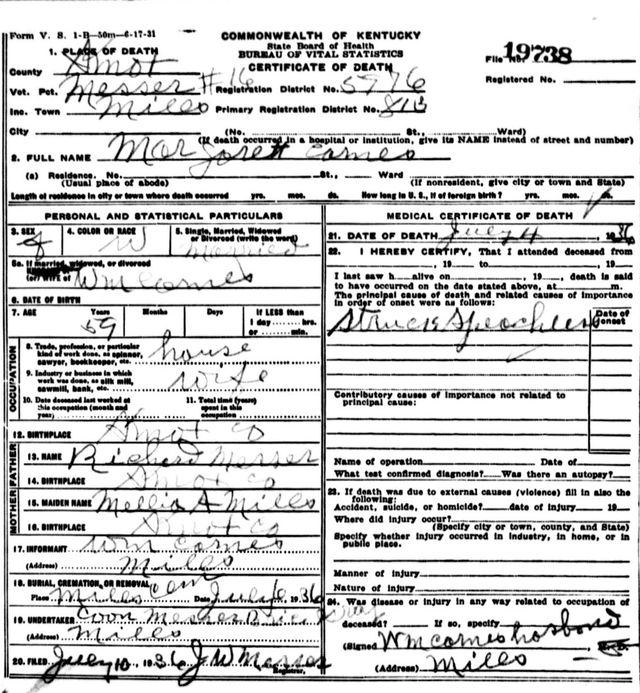 Form V. S. 1-B—50m—6-17-31
COMMONWEALTH OF KENTUCKY
State Board of Health
BUREAU OF VITAL STATISTICS
CERTIFICATE OF DEATH
File No. 19738
Registered No.
1. PLACE OF DEATH
County Knot
Vot. Pct. Messer #16 Registration District No. 5976
Inc. Town Mills Primary Registration District No. 813
City (No. St., Ward)
(If death occurred in a hospital or institution, give its NAME instead of street and number)
2. FULL NAME Mar Carnes
(a) Residence. No. St., Ward
(Usual place of abode) (If nonresident, give city or town and State)
Length of residence in city or town where death occurred yrs. mos. ds. How long in U. S., if of foreign birth? yrs. mos. ds.
PERSONAL AND STATISTICAL PARTICULARS
3. SEX f
4. COLOR OR RACE W
5. Single, Married, Widowed or Divorced (write the word) Married
5a. If married, widowed, or divorced
(or) WIFE of Wm Carnes
6. DATE OF BIRTH
7. AGE Years 59 Months Days If LESS than 1 day hrs. or min.
OCCUPATION
8. Trade, profession, or particular kind of work done, as spinner, sawyer, bookkeeper, etc. house
9. Industry or business in which work was done, as silk mill, sawmill, bank, etc. wife
10. Date deceased last worked at this occupation (month and year)
11. Total time (years) spent in this occupation
12. BIRTHPLACE Knot Co
FATHER
13. NAME Richard Messer
14. BIRTHPLACE Knot Co
MOTHER
15. MAIDEN NAME A Mills
16. BIRTHPLACE Knot Co
17. INFORMANT Wm Carnes
(Address) Mills
18. BURIAL, CREMATION, OR REMOVAL
Place Mills Cem Date July 6 1936
19. UNDERTAKER Coon Messer
(Address) Mills
20. FILED July 10 1936 J W Messer
Registrar.
MEDICAL CERTIFICATE OF DEATH
21. DATE OF DEATH July 4 1936
22. I HEREBY CERTIFY, That I attended deceased from
, 19 to , 19
I last saw h alive on , 19 death is said
to have occurred on the date stated above, at m.
The principal cause of death and related causes of importance
in order of onset were as follows:
Date of onset
Struck Speachless
Contributory causes of importance not related to
principal cause:
Name of operation Date of
What test confirmed diagnosis? Was there an autopsy?
23. If death was due to external causes (violence) fill in also the
following:
Accident, suicide, or homicide? date of injury 19
Where did injury occur?
(Specify city or town, county, and State)
Specify whether injury occurred in industry, in home, or in
public place.
Manner of injury
Nature of injury
24. Was disease or injury in any way related to occupation of
deceased? If so, specify
(Signed Wm carnes hosbond M.D.
(Address) Mills